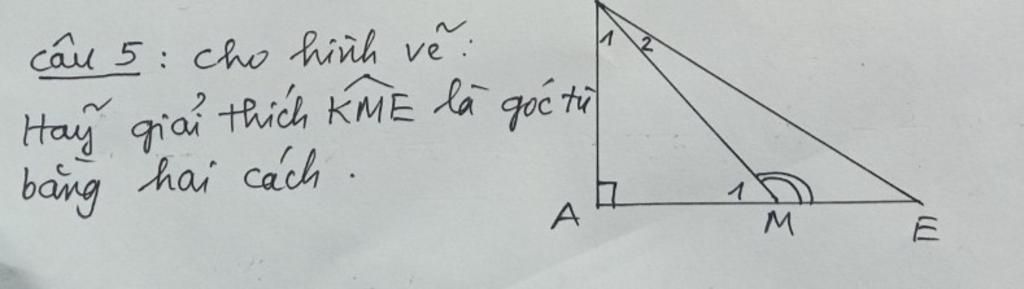 Câu 5 : Cho hình vẽ :
Hãy giải thích KME là góc tù
bằng hai cách .
1 2
1
A M E